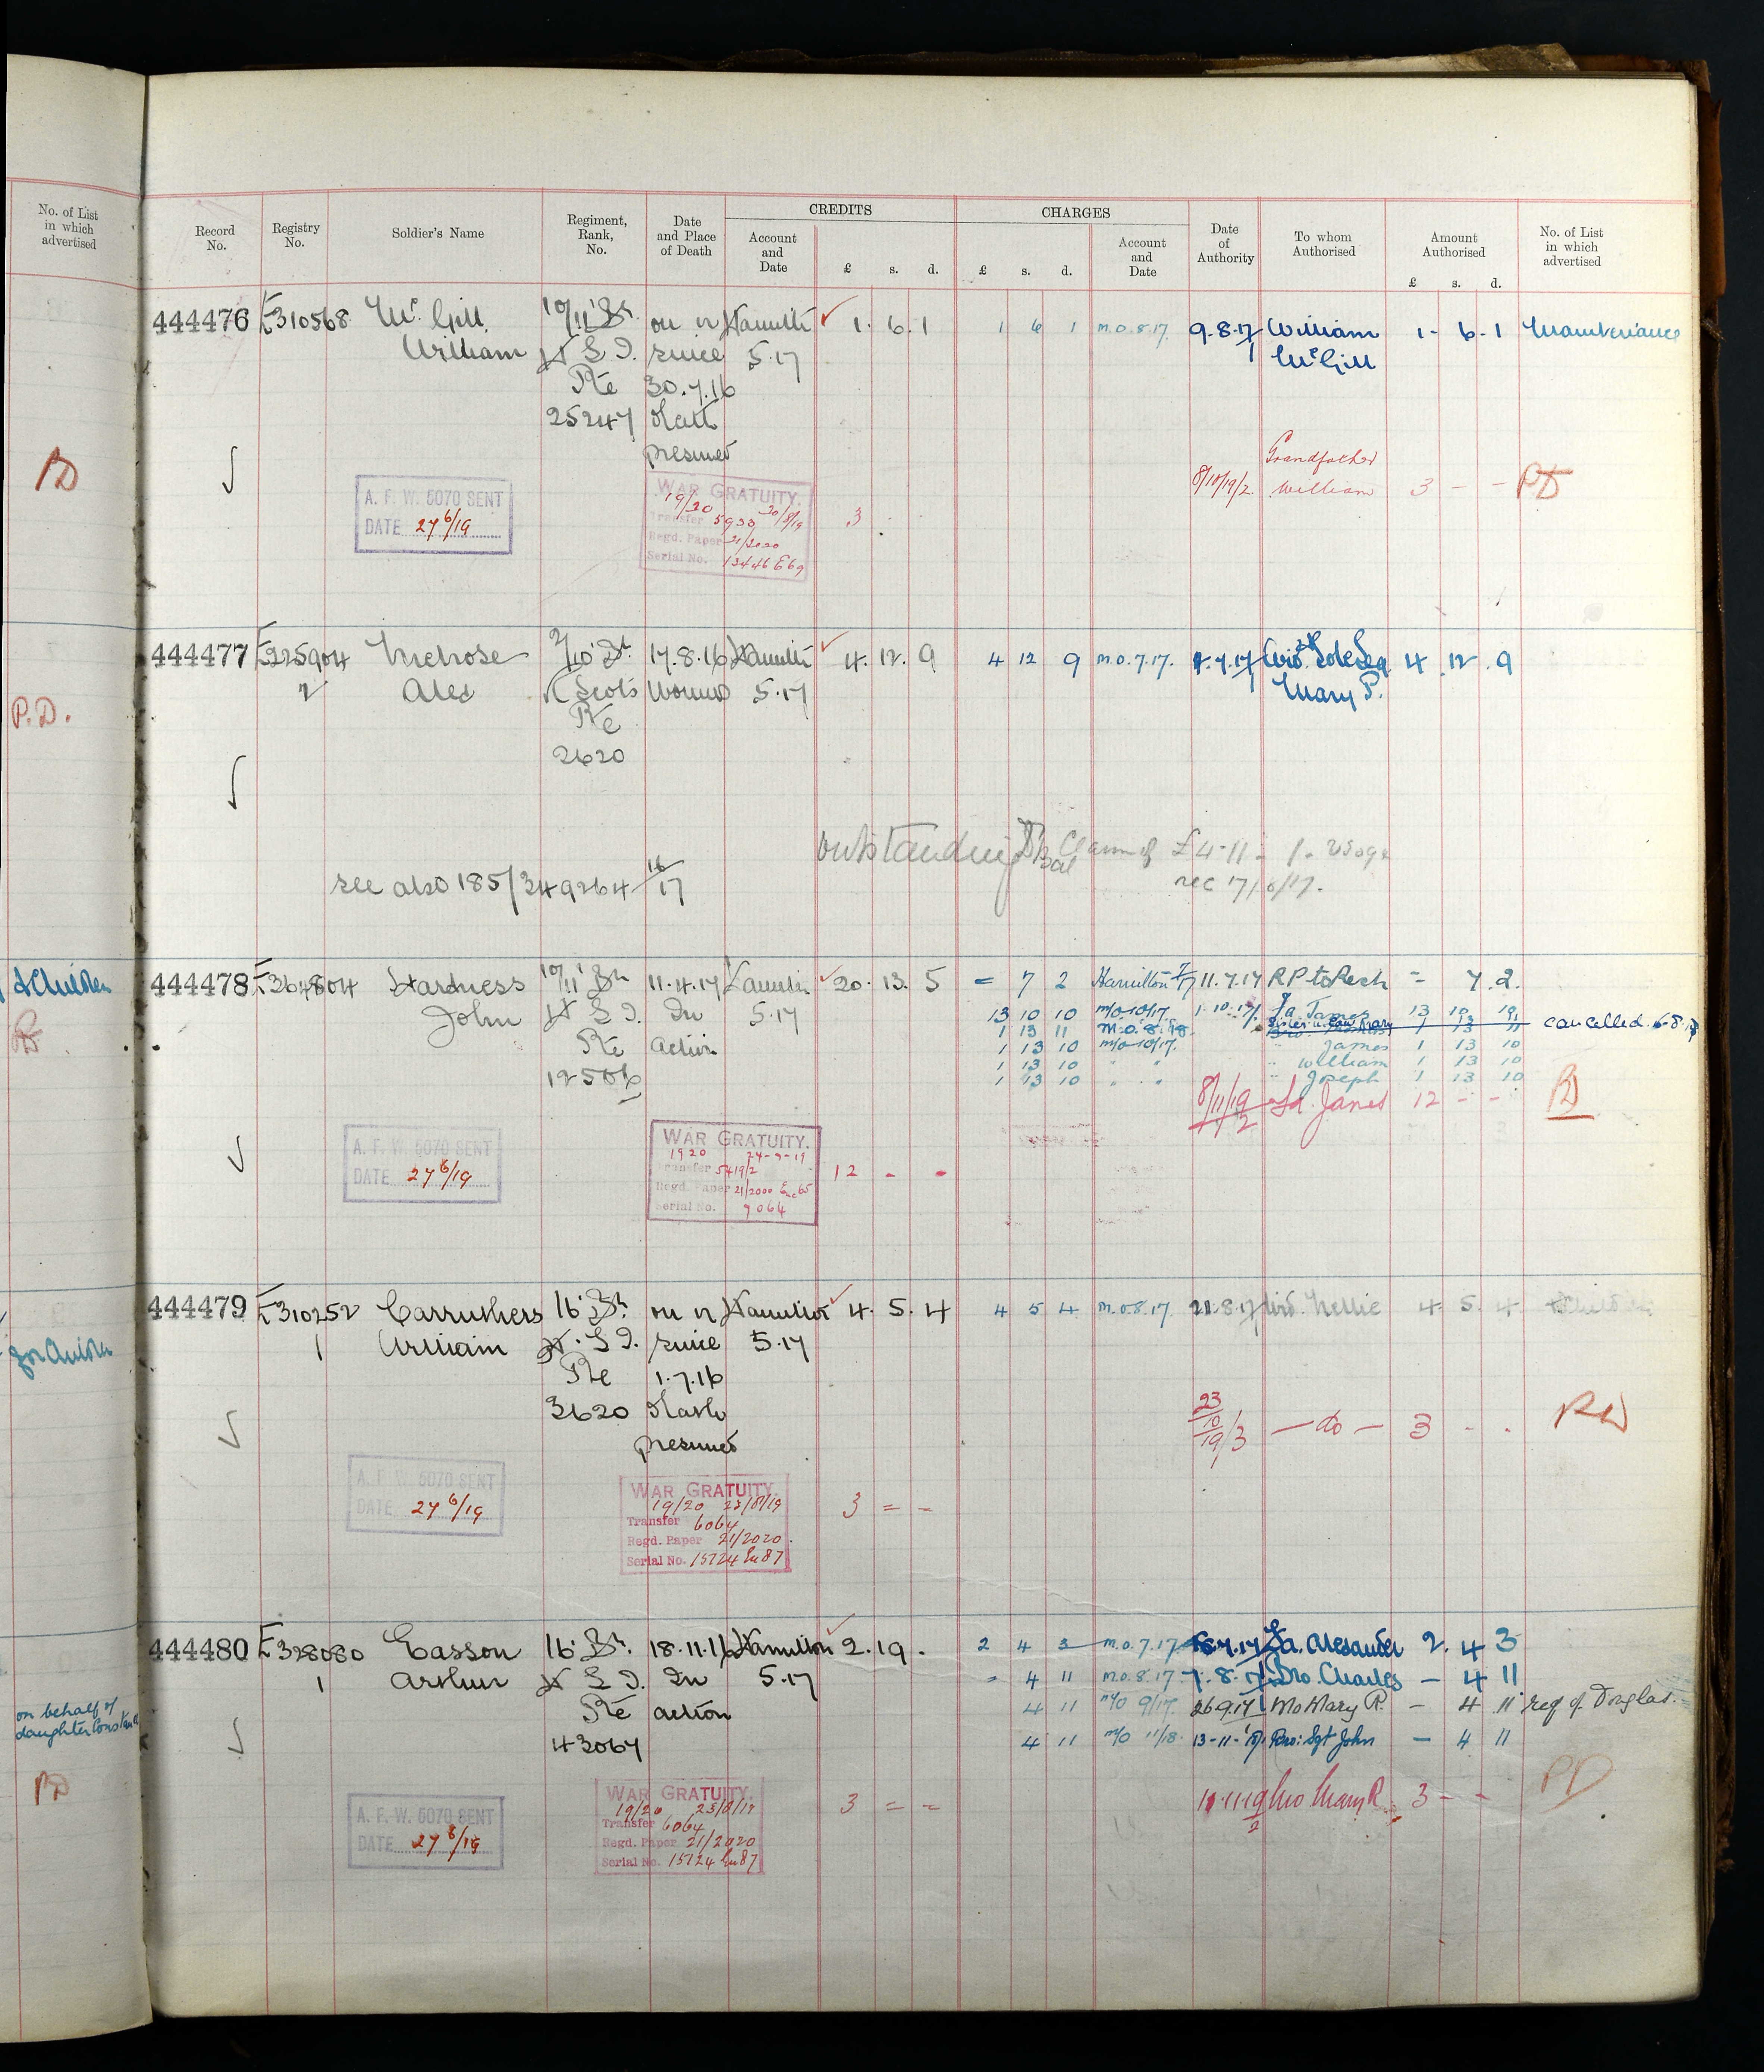 No. of List
in which
advertised
PD
P.D.
& Children
PD
for Children
on behalf of
daughter Constance
PD
Record
No.
Registry
No.
Soldier's Name
Regiment,
Rank,
No.
Date
and Place
of Death
CREDITS
Account
and
Date
£ s. d.
CHARGES
£ s. d.
Account
and
Date
Date
of
Authority
To whom
Authorised
Amount
Authorised
£ s. d.
No. of List
in which
advertised
444476 E310568 McGill 10/11 Bn on or Hamilton 1. 6. 1 1 6 1 M.O.8.17. 9.8.17 William 1. 6. 1 Maintenance
William H L I. since 5.17 McGill
Pte 30.7.16
25247 Death
presumed
Grandfather
8/10/19/2. William 3 - - PD
A. F. W. 5070 SENT
DATE 27 6/19
WAR GRATUITY.
19/20 20/8/19
Transfer 5933
Regd. Paper 21/2020
Serial No. 13446 E69
3
444477 E225904 Melrose 2/10 Bn 17.8.16 Hamilton 4. 12. 9 4 12 9 M.O.7.17. 7.17 Wid. Sole Leg 4 12 9
2 Alex R Scots Wounds 5.17 Mary P.
Pte
2620
Outstanding Claim of £4-11-
rec 17/
see also 185/349264 16/17
444478 E364804 Harkness 10/11 Bn 11.4.17 Hamilton 20. 13. 5 = 7 2 Hamilton 11.7.17 R P to Rech = 7. 2.
John H L I. In 5.17 13 10 10 M/O 10/17. 1.10.17 Fa James 13 10 10
1 13 11 M.O.8.18. Sister in law Mary 1 13 11 cancelled
Pte Action 1 13 10 M/O 10/17. " James 1 13 10
12506 1 13 10 " " " William 1 13 10
1 13 10 " " " Joseph 1 13 10
8/11/19/2 Fa. James 12 - - PD
A. F. W. 5070 SENT
DATE 27 6/19
WAR GRATUITY.
1920 24-7-19
Transfer 5419/2
Regd. Paper 21/2000 Enc 65
Serial No. 7064
12 - -
444479 E310252 Carruthers 16 Bn on or Hamilton 4. 5. 4 4 5 4 M.O.8.17. 21.8.17 Wid. Nellie 4. 5. 4
1 William H. L I. since 5.17
Pte 1.7.16
3620 Death
presumed
23/10/19/3 - do - 3 - - PD
A. F. W. 5070 SENT
DATE 27 6/19
WAR GRATUITY.
19/20 23/8/19
Transfer 6064
Regd. Paper 21/2020.
Serial No. 15724 En87
3 = -
444480 E328080 Easson 16 Bn. 18.11.16 Hamilton 2. 19. - 2 4 3 M.O.7.17 7.17 Fa. Alexander 2. 4 3
1 Arthur H L I. In 5.17 - 4 11 M.O.8.17 7.8.17 Bro Charles - 4 11
Pte action 4 11 M/O 9/17. 26.9.17 Mo Mary R. - 4 11 reg of Douglas.
43067 4 11 M/O 11/18. 13-11-18 Bro: Sgt John - 4 11
11.11.19/2 Mo Mary R. 3 - - PD
A. F. W. 5070 SENT
DATE 27 6/19
WAR GRATUITY.
19/20 23/8/19
Transfer 6064
Regd. Paper 21/2020
Serial No. 15724 En87
3 = =